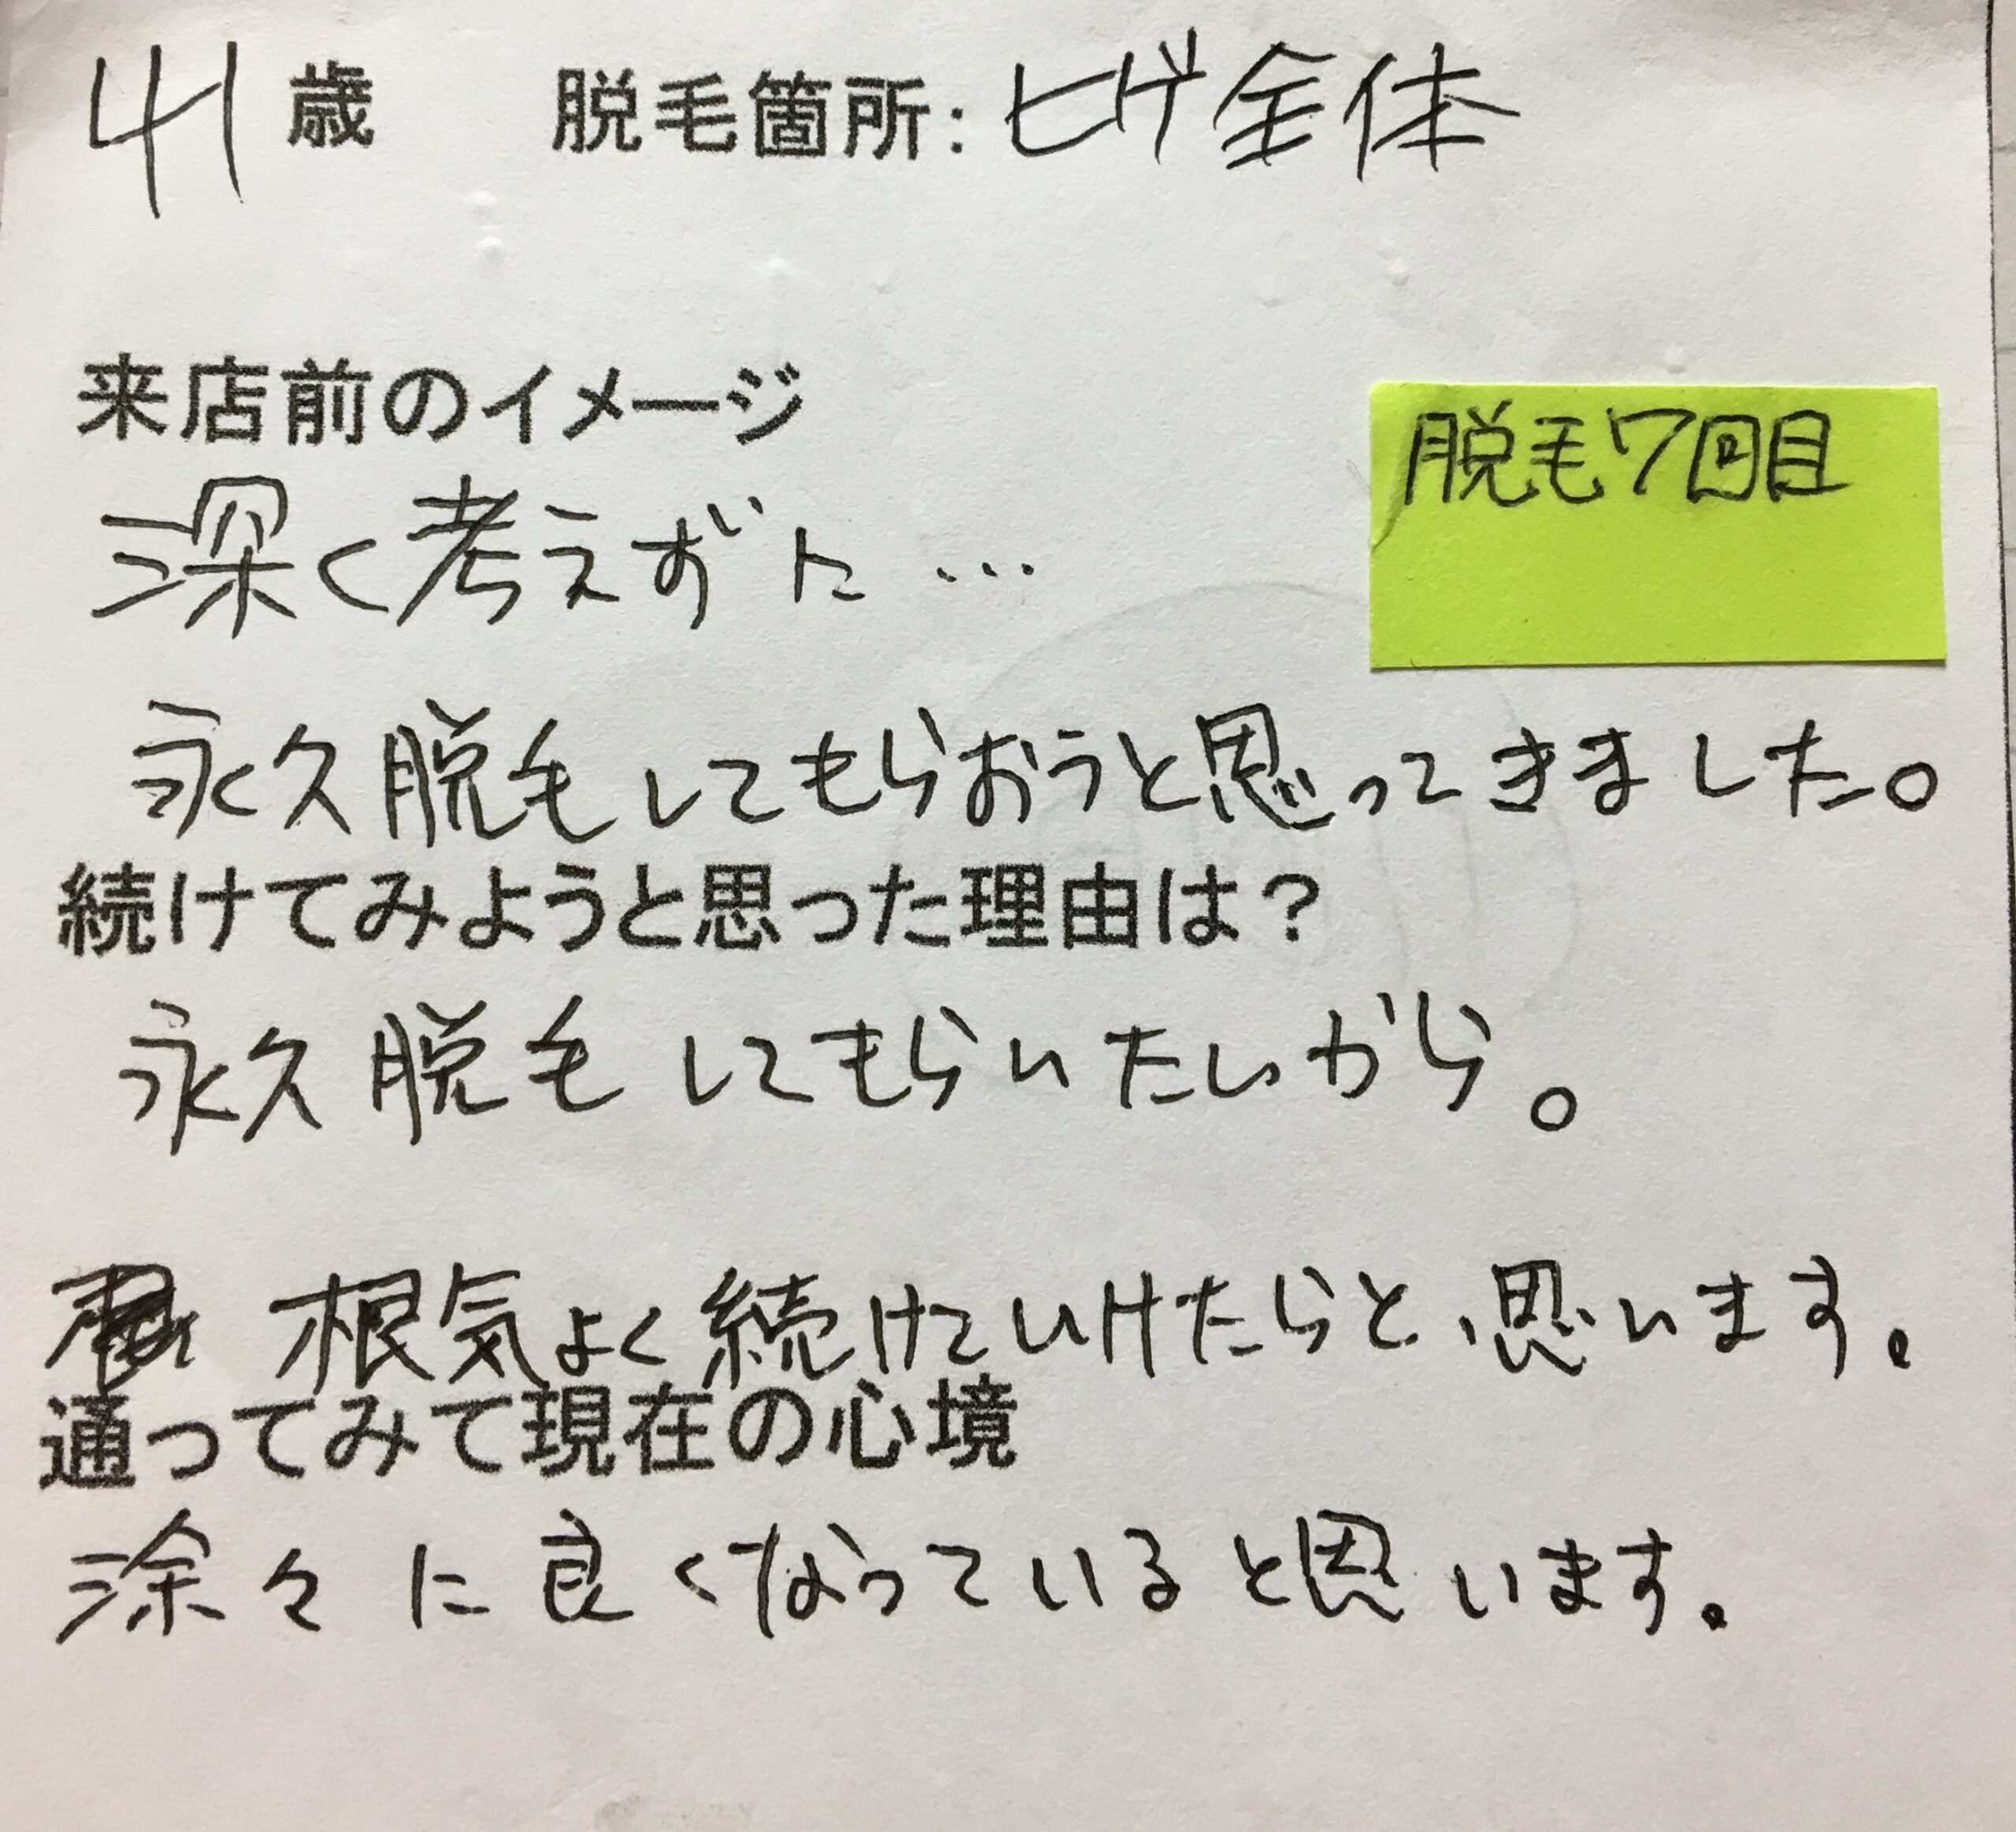 41歳 脱毛箇所:ヒゲ全体
来店前のイメージ
脱毛7回目
深く考えずに…
永久脱毛してもらおうと思ってきました。
続けてみようと思った理由は?
永久脱毛してもらいたいから。
根気よく続けていけたらと思います。
通ってみて現在の心境
徐々に良くなっていると思います。